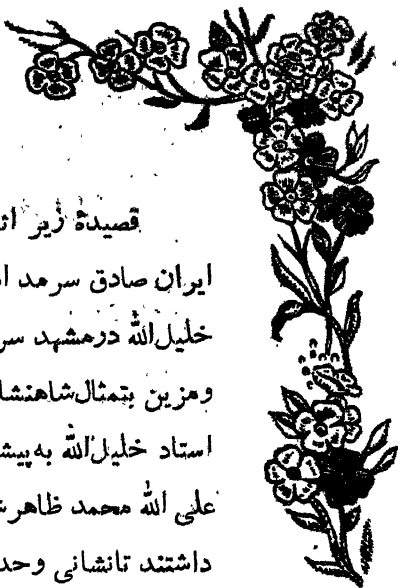 قصیدهٔ زیر
ایران صادق سرمد
خلیل‌الله درمشهد
ومزین بتمثال شاهنشا
استاد خلیل‌الله به پیش
علی‌الله محمد ظاهرش
داشتند تانشانی وحد